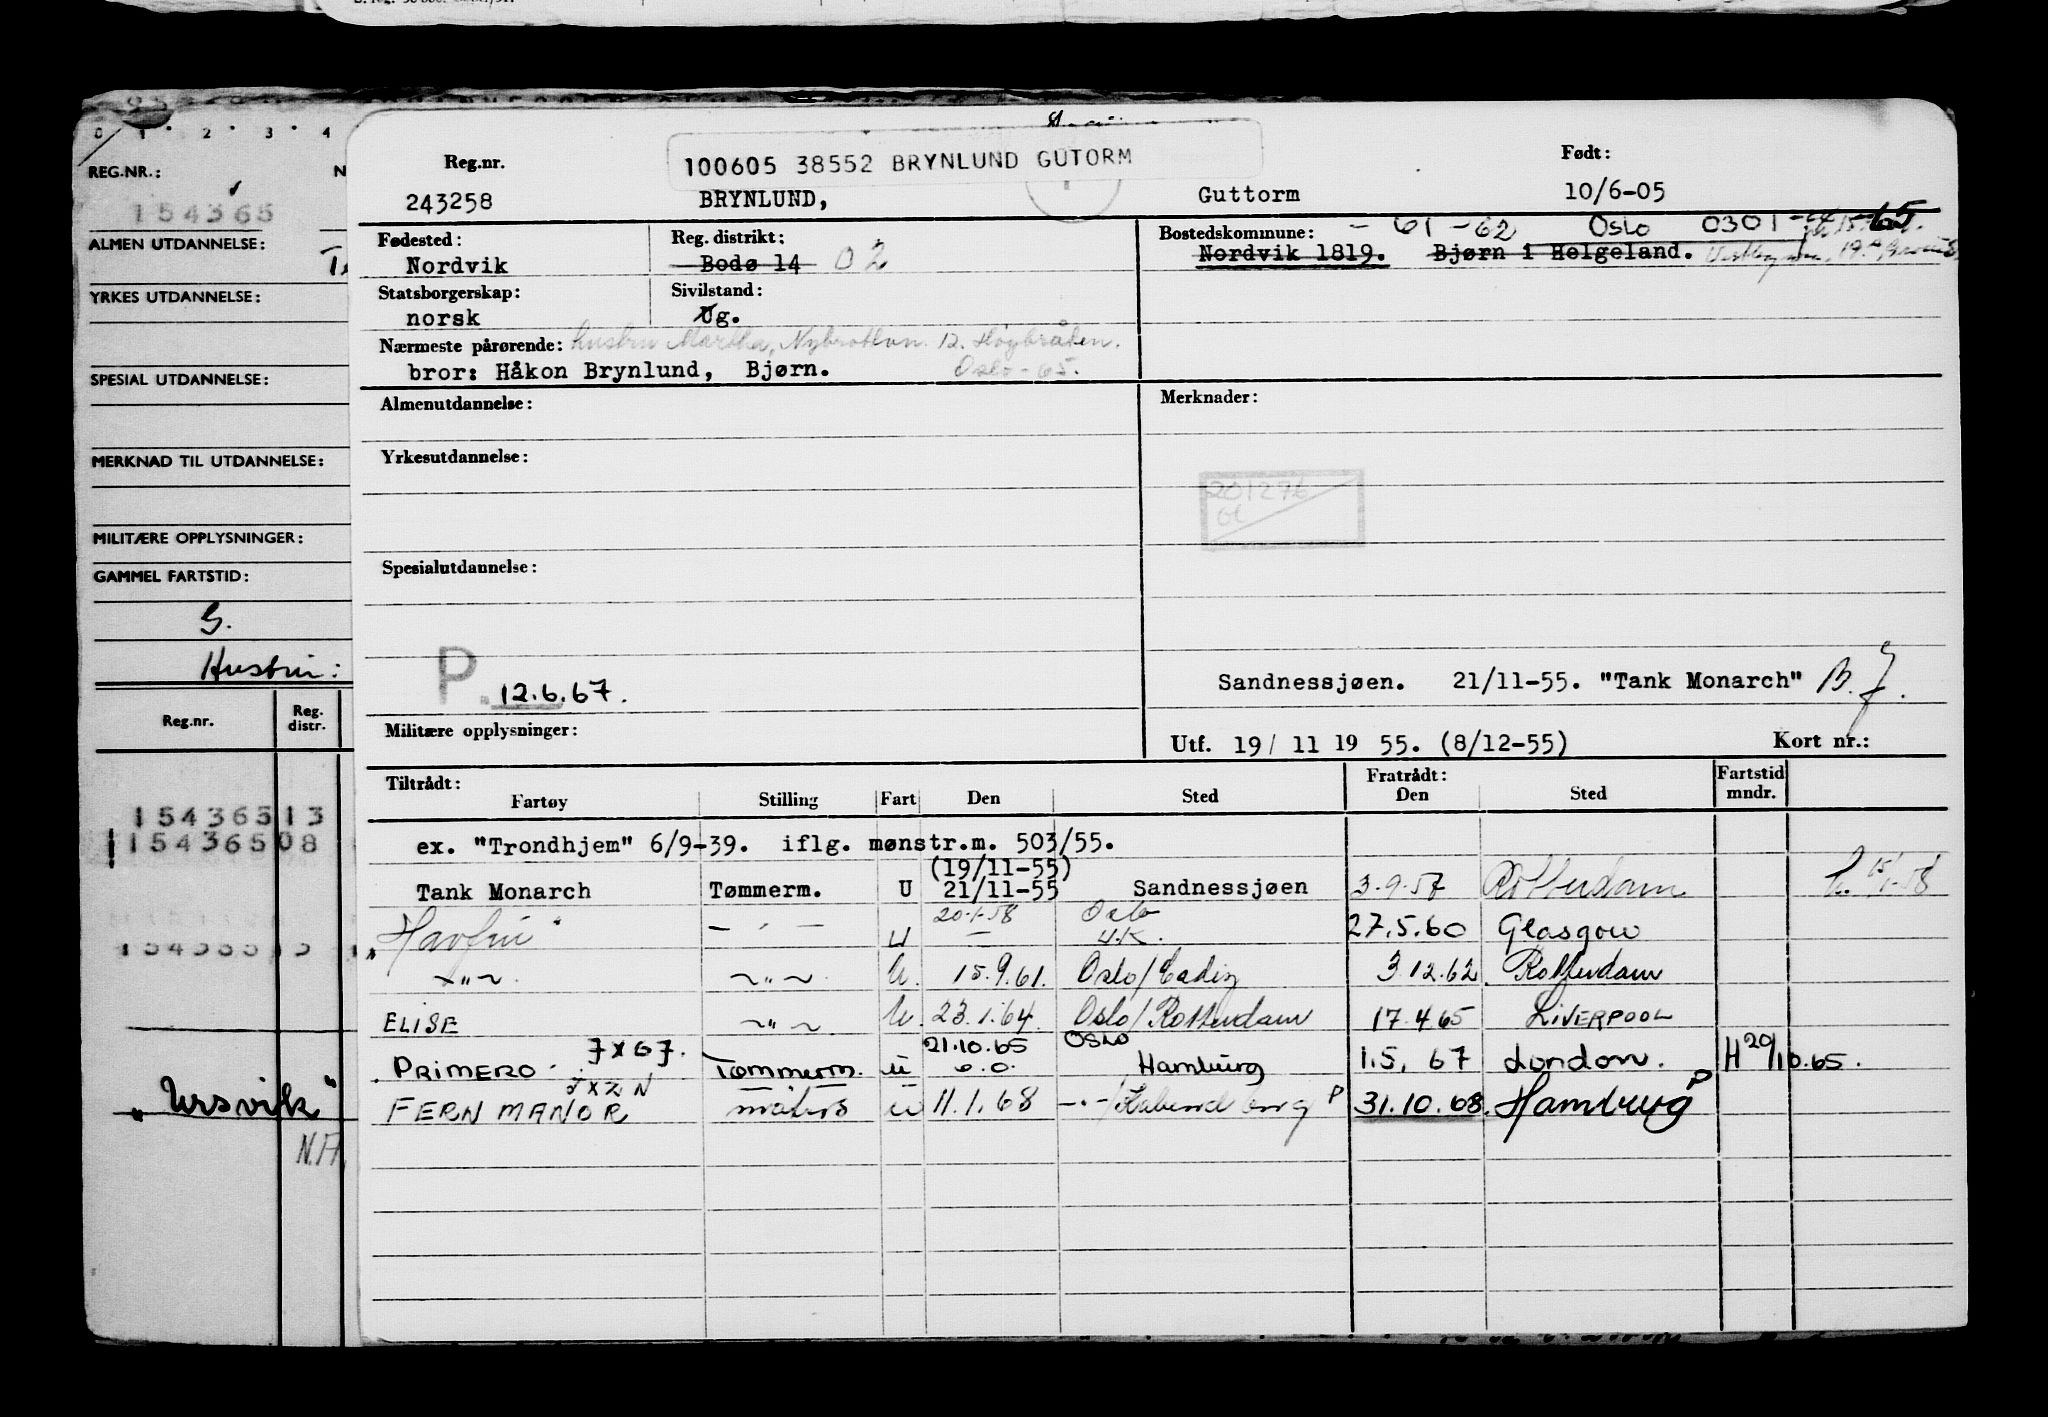 0 1 2 3 4
REG.NR.: N
154365
ALMEN UTDANNELSE:
YRKES UTDANNELSE:
SPESIAL UTDANNELSE:
MERKNAD TIL UTDANNELSE:
MILITÆRE OPPLYSNINGER:
GAMMEL FARTSTID:
G.
Hustru:
Reg.nr. Reg. distr.
154365 13
154365 08
"Ursvik"
N.A.
Reg.nr. 100605 38552 BRYNLUND GUTORM Født:
243258 BRYNLUND, Guttorm 10/6-05
Fødested: Reg. distrikt: Bostedskommune: - 61 - 62 Oslo 0301 -64 -65.
Nordvik Bodø 14 02 Nordvik 1819. Bjørn i Helgeland.
Statsborgerskap: Sivilstand:
norsk Ug.
Nærmeste pårørende: hustru Martha, Nybrottvn. 12. Høybråten.
bror: Håkon Brynlund, Bjørn. Oslo - 65.
Almenutdannelse: Merknader:
Yrkesutdannelse:
201276
Spesialutdannelse:
P. 12.6.67.
Sandnessjøen. 21/11-55. "Tank Monarch" B.J.
Militære opplysninger: Utf. 19/ 11 19 55. (8/12-55) Kort nr.:
Tiltrådt: Fratrådt: Fartstid
Fartøy Stilling Fart Den Sted Den Sted mndr.
ex. "Trondhjem" 6/9-39. iflg. mønstr.m. 503/55.
(19/11-55)
Tank Monarch Tømmerm. U 21/11-55 Sandnessjøen 3.9.57 Rotterdam
20.1.58 Oslo
"Havfru" - " - U - U.K. 27.5.60 Glasgow
~ " ~ ~ " ~ U. 15.9.61. Oslo/Cadiz 3.12.62 Rotterdam
ELISE ~ " ~ U. 23.1.64. Oslo/Rotterdam 17.4.65 LIVERPOOL
JXGJ. 21.10.65 OSLO
PRIMERO Tømmerm. u Hamburg 1.5.67 London. H 20/10.65.
JXZN
FERN MANOR matros u 11.1.68 31.10.68. Hamburg P